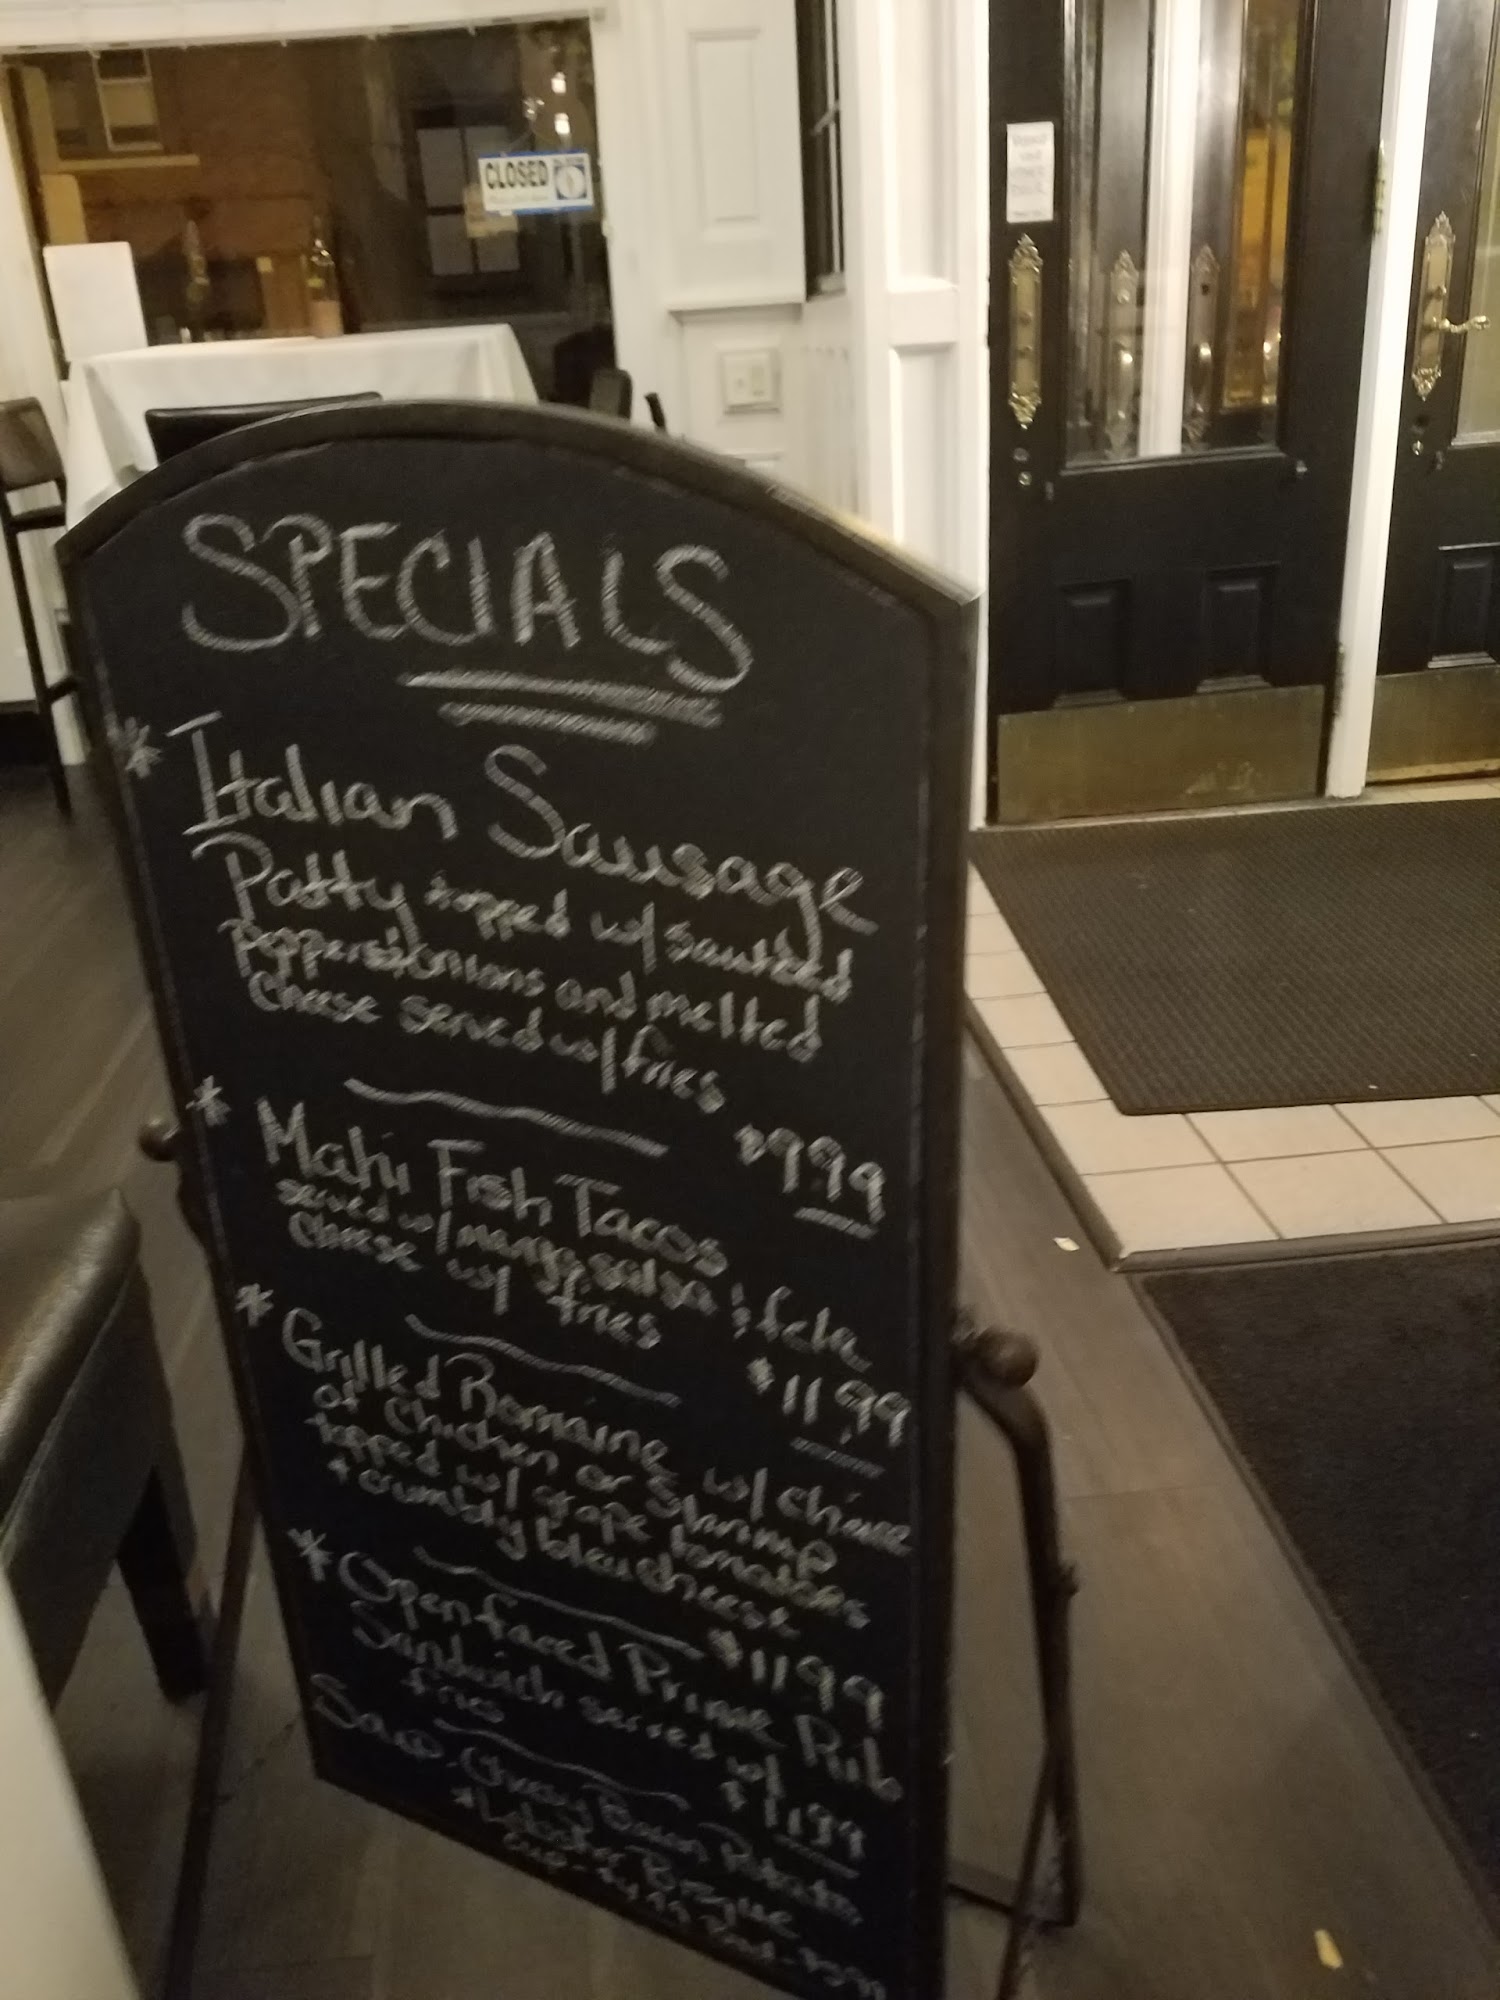 CLOSED
SPECIALS
* Italian Sausage
Patty topped w/ sauteed
peppers & onions and melted
cheese served w/ fries
$9.99
* Mahi Fish Tacos
served w/ mango salsa & feta
cheese w/ fries
$11.99
* Grilled Romaine w/ choice
of chicken or shrimp
topped w/ grape tomatoes
+ crumbly bleu cheese
$11.99
* Open faced Prime Rib
Sandwich served w/
fries
$11.99
Soup
* Lobster Bisque